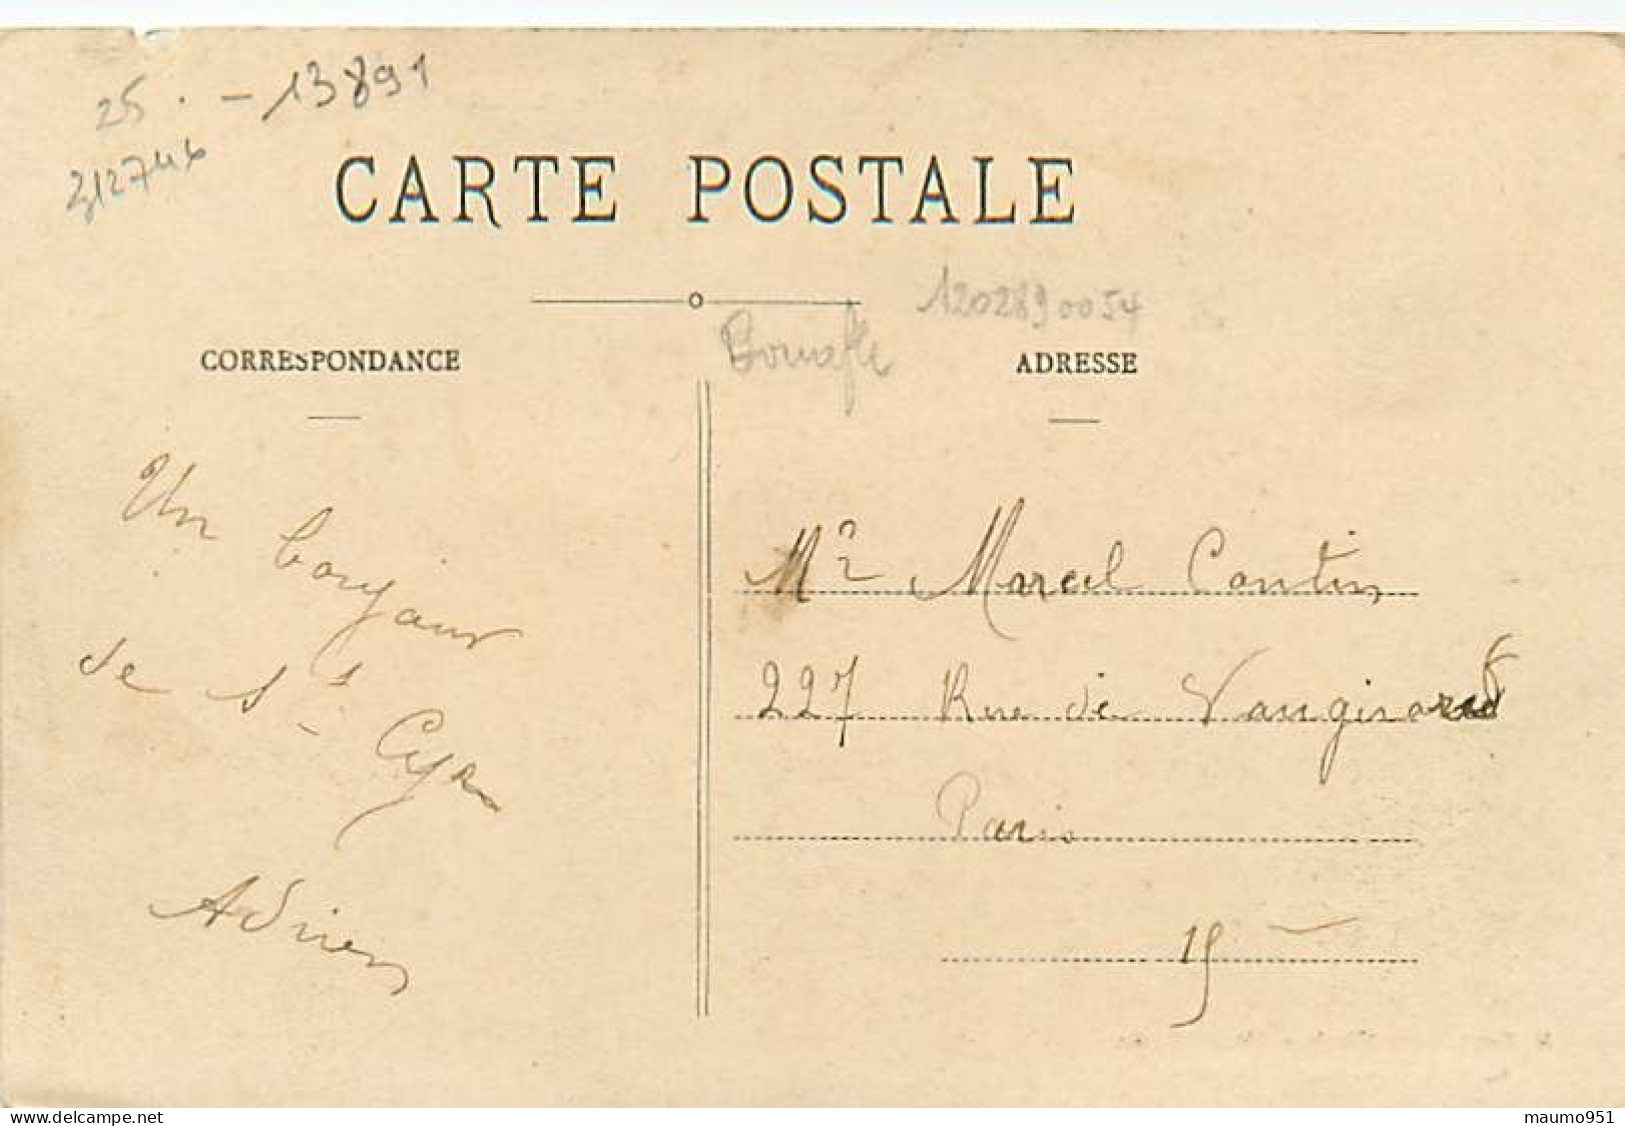 25. - 13891
212746
CARTE POSTALE
1202890054
Bouafle
CORRESPONDANCE
ADRESSE
Un bonjour
de St Cyr
Adrien
Mr Marcel Contin
227 Rue de Vaugirard
Paris
15
www.delcampe.net
maumo951